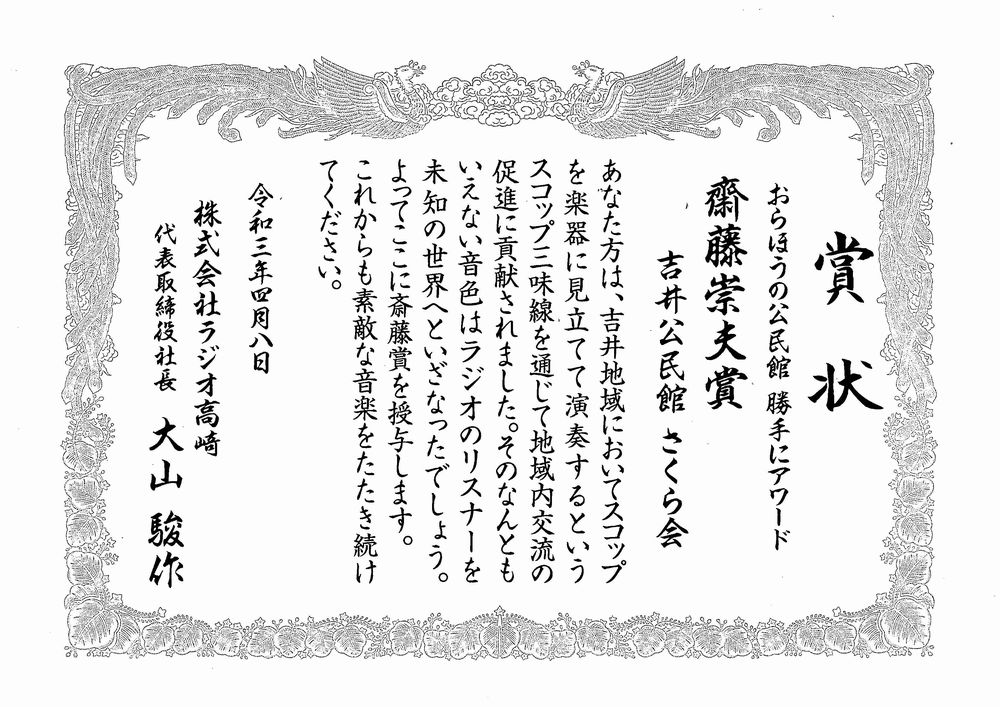 賞状
おらほうの公民館 勝手にアワード
齋藤崇夫賞
吉井公民館 さくら会
あなた方は、吉井地域においてスコップ
を楽器に見立てて演奏するという
スコップ三味線を通じて地域内交流の
促進に貢献されました。そのなんとも
いえない音色はラジオのリスナーを
未知の世界へといざなったでしょう。
よってここに斎藤賞を授与します。
これからも素敵な音楽をたたき続け
てください。
令和三年四月八日
株式会社ラジオ高崎
代表取締役社長 大山 駿作